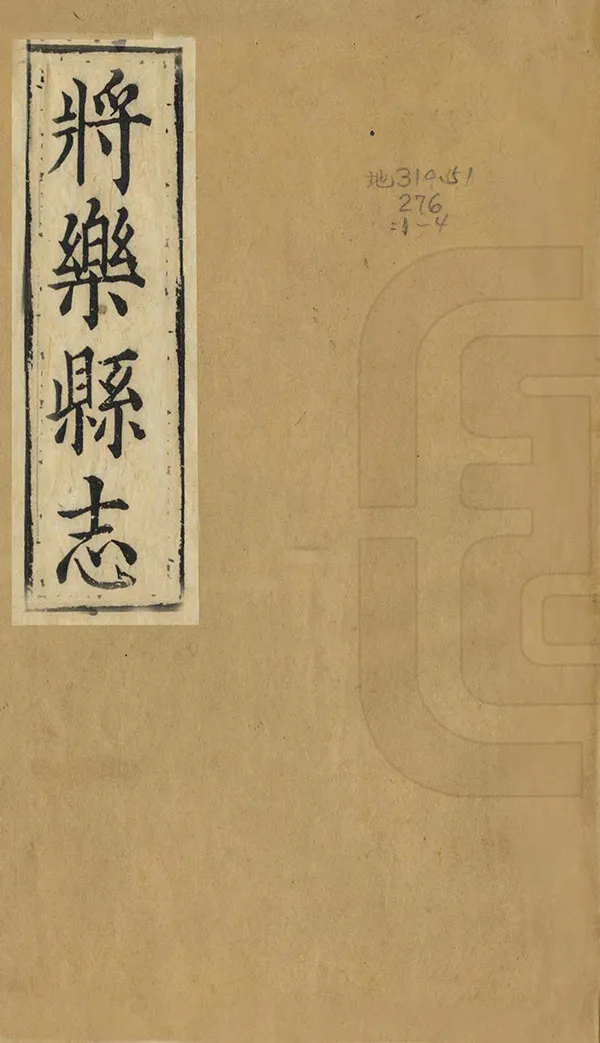 將樂縣志
地314.51
276
:1-4